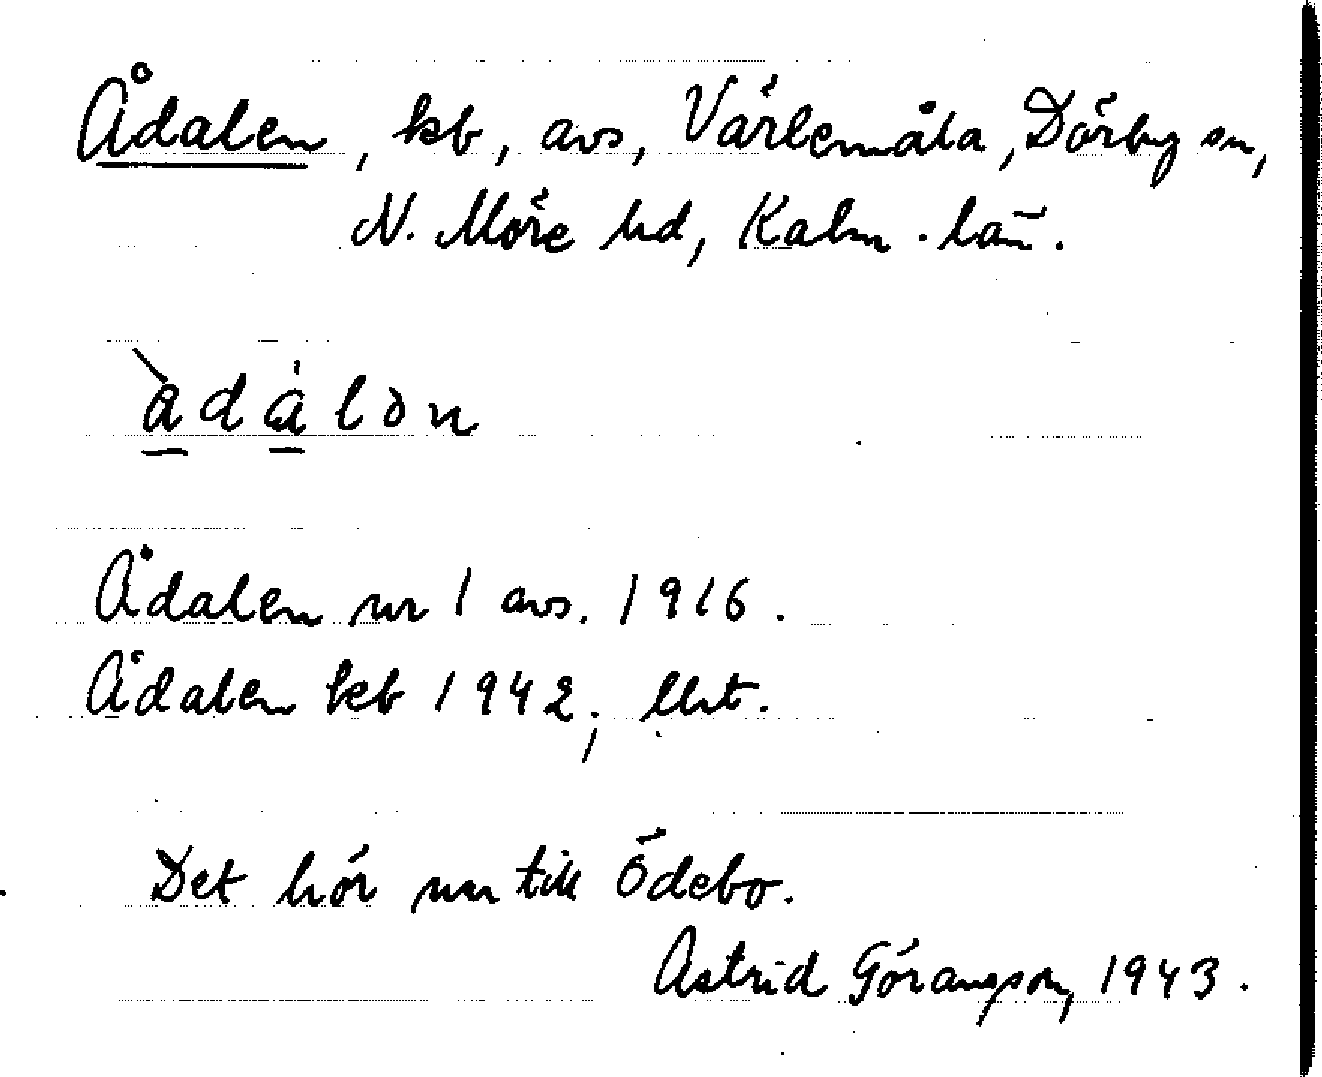 Ådalen, kb, avs, Värlemåla, Dörby sn,
N. Möre hd, Kalm. län.
àdálən
Ådalen nr 1 avs. 1916.
Ådalen kb 1942; Uht.
Det hör nu till Ödebo.
Astrid Göransson, 1943.